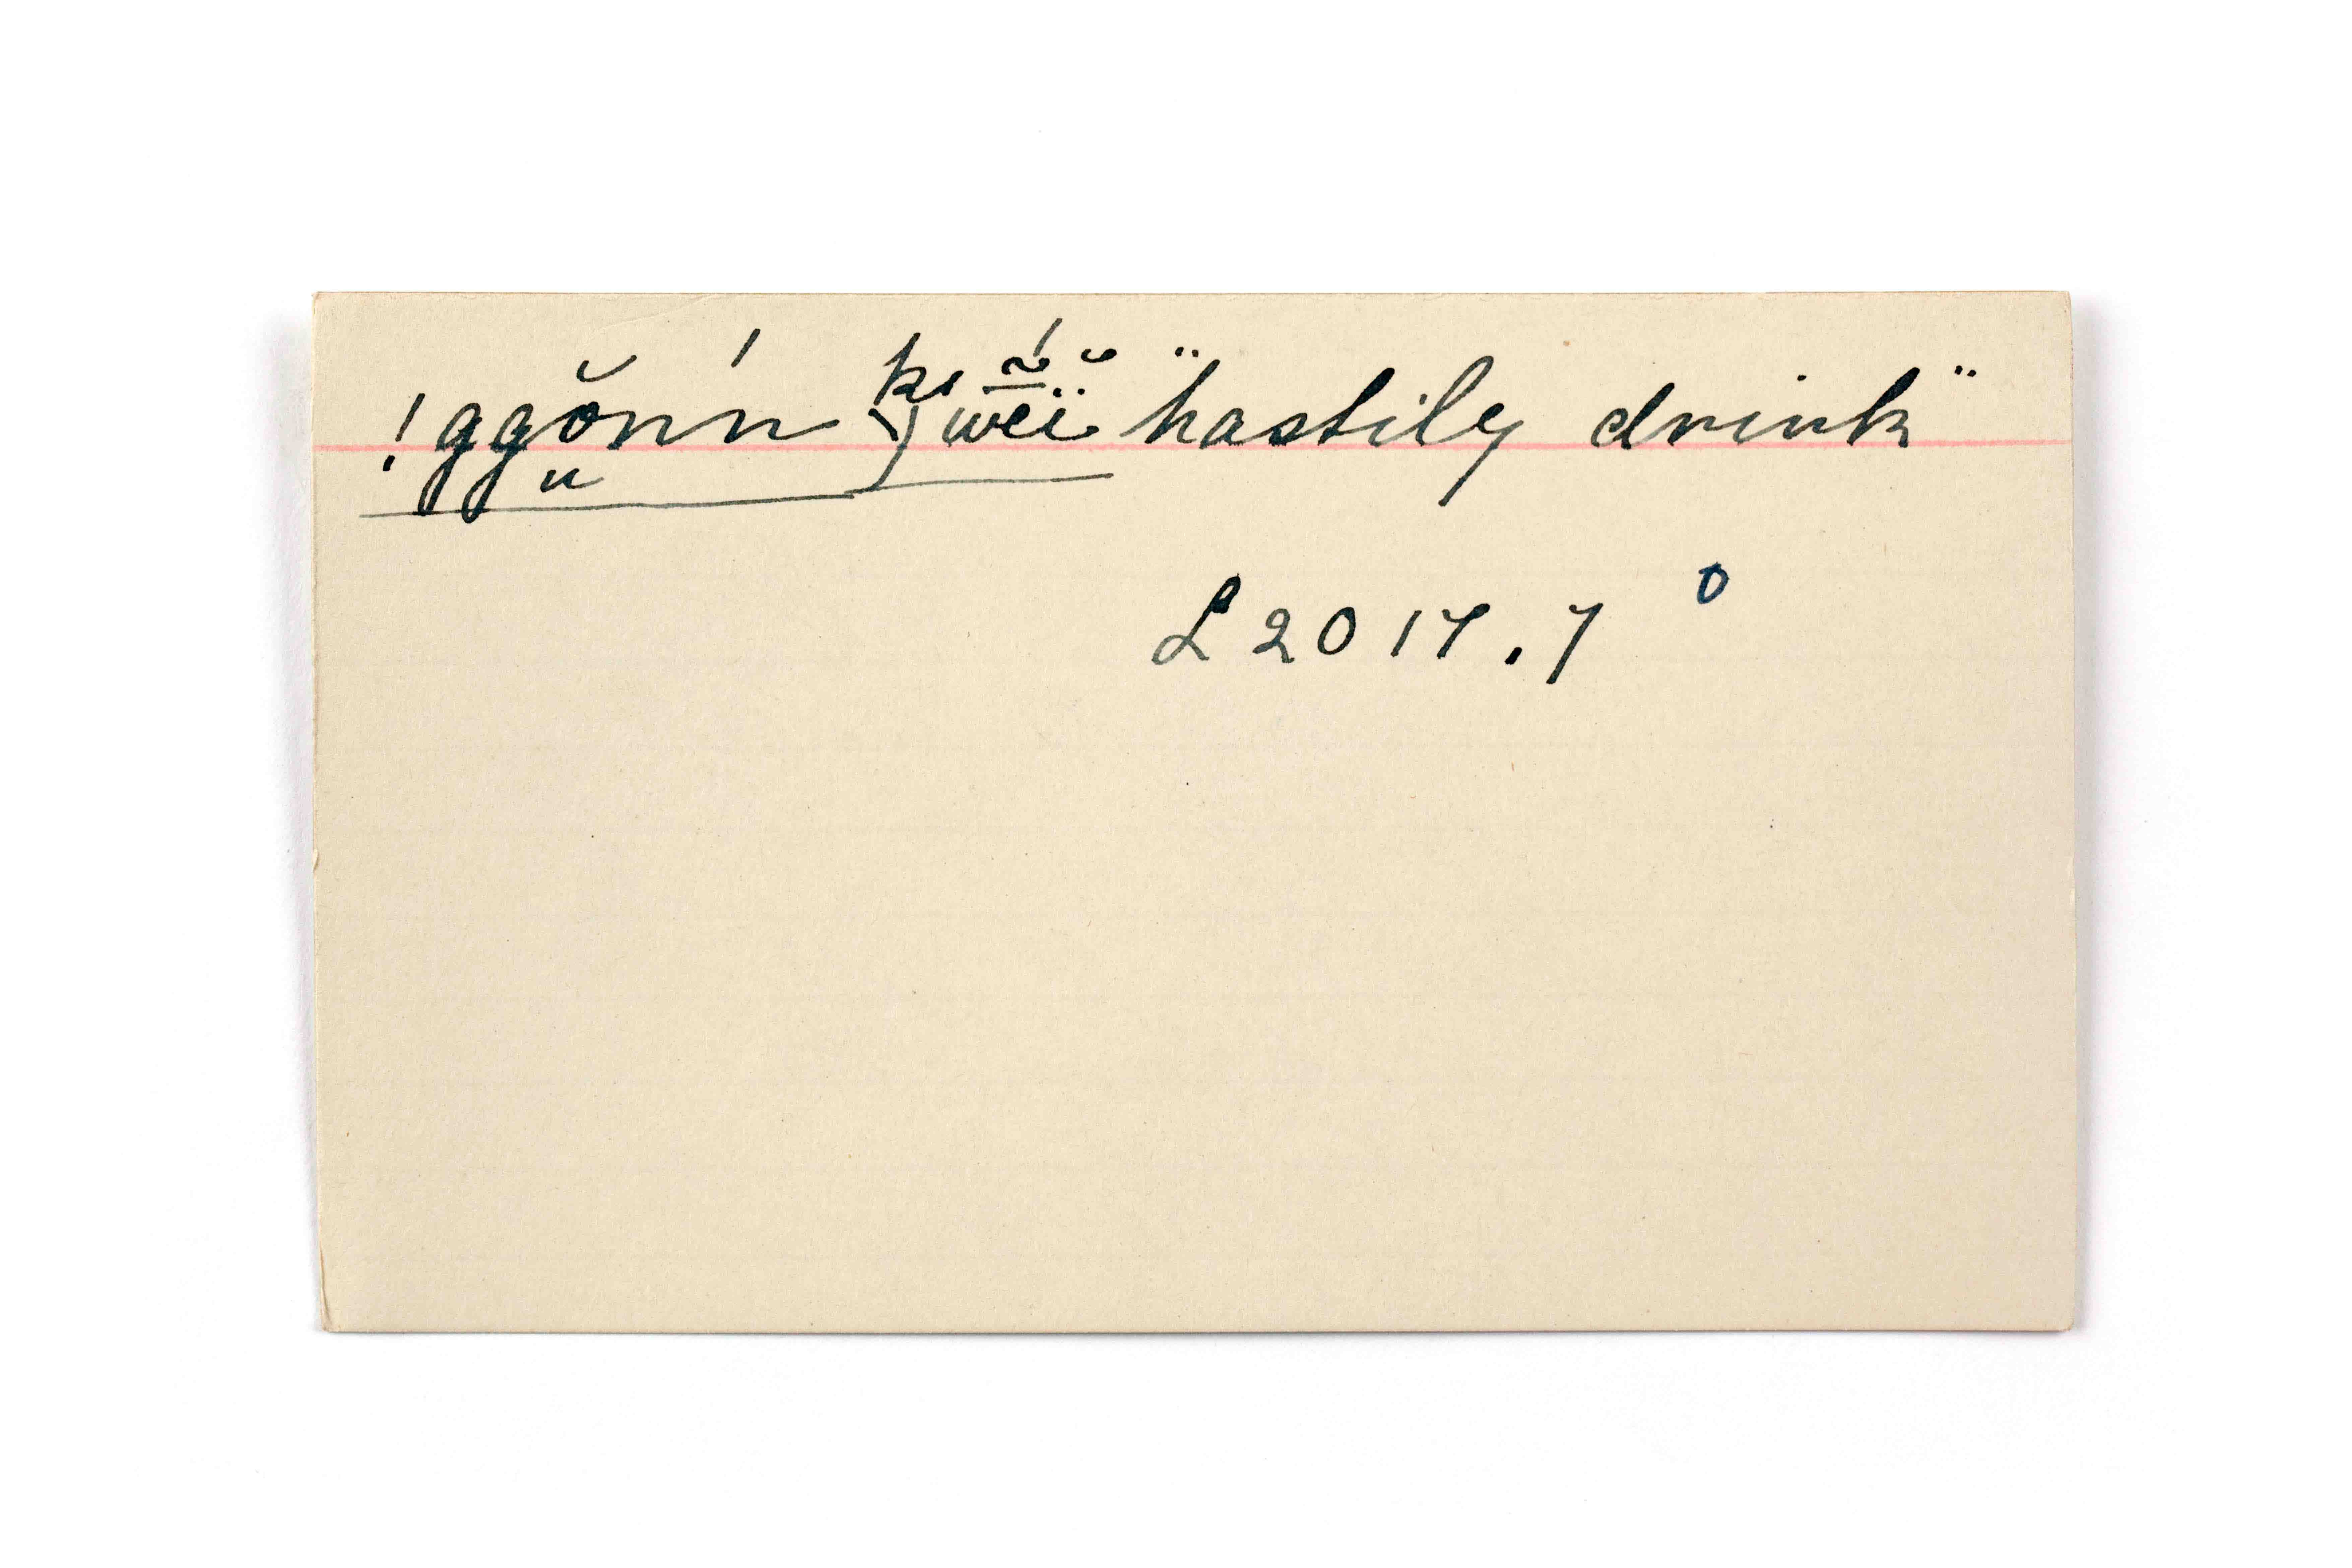 !ggŏn̆´n k")wé̄ï̆ "hastily drink"
L 2014.7 o